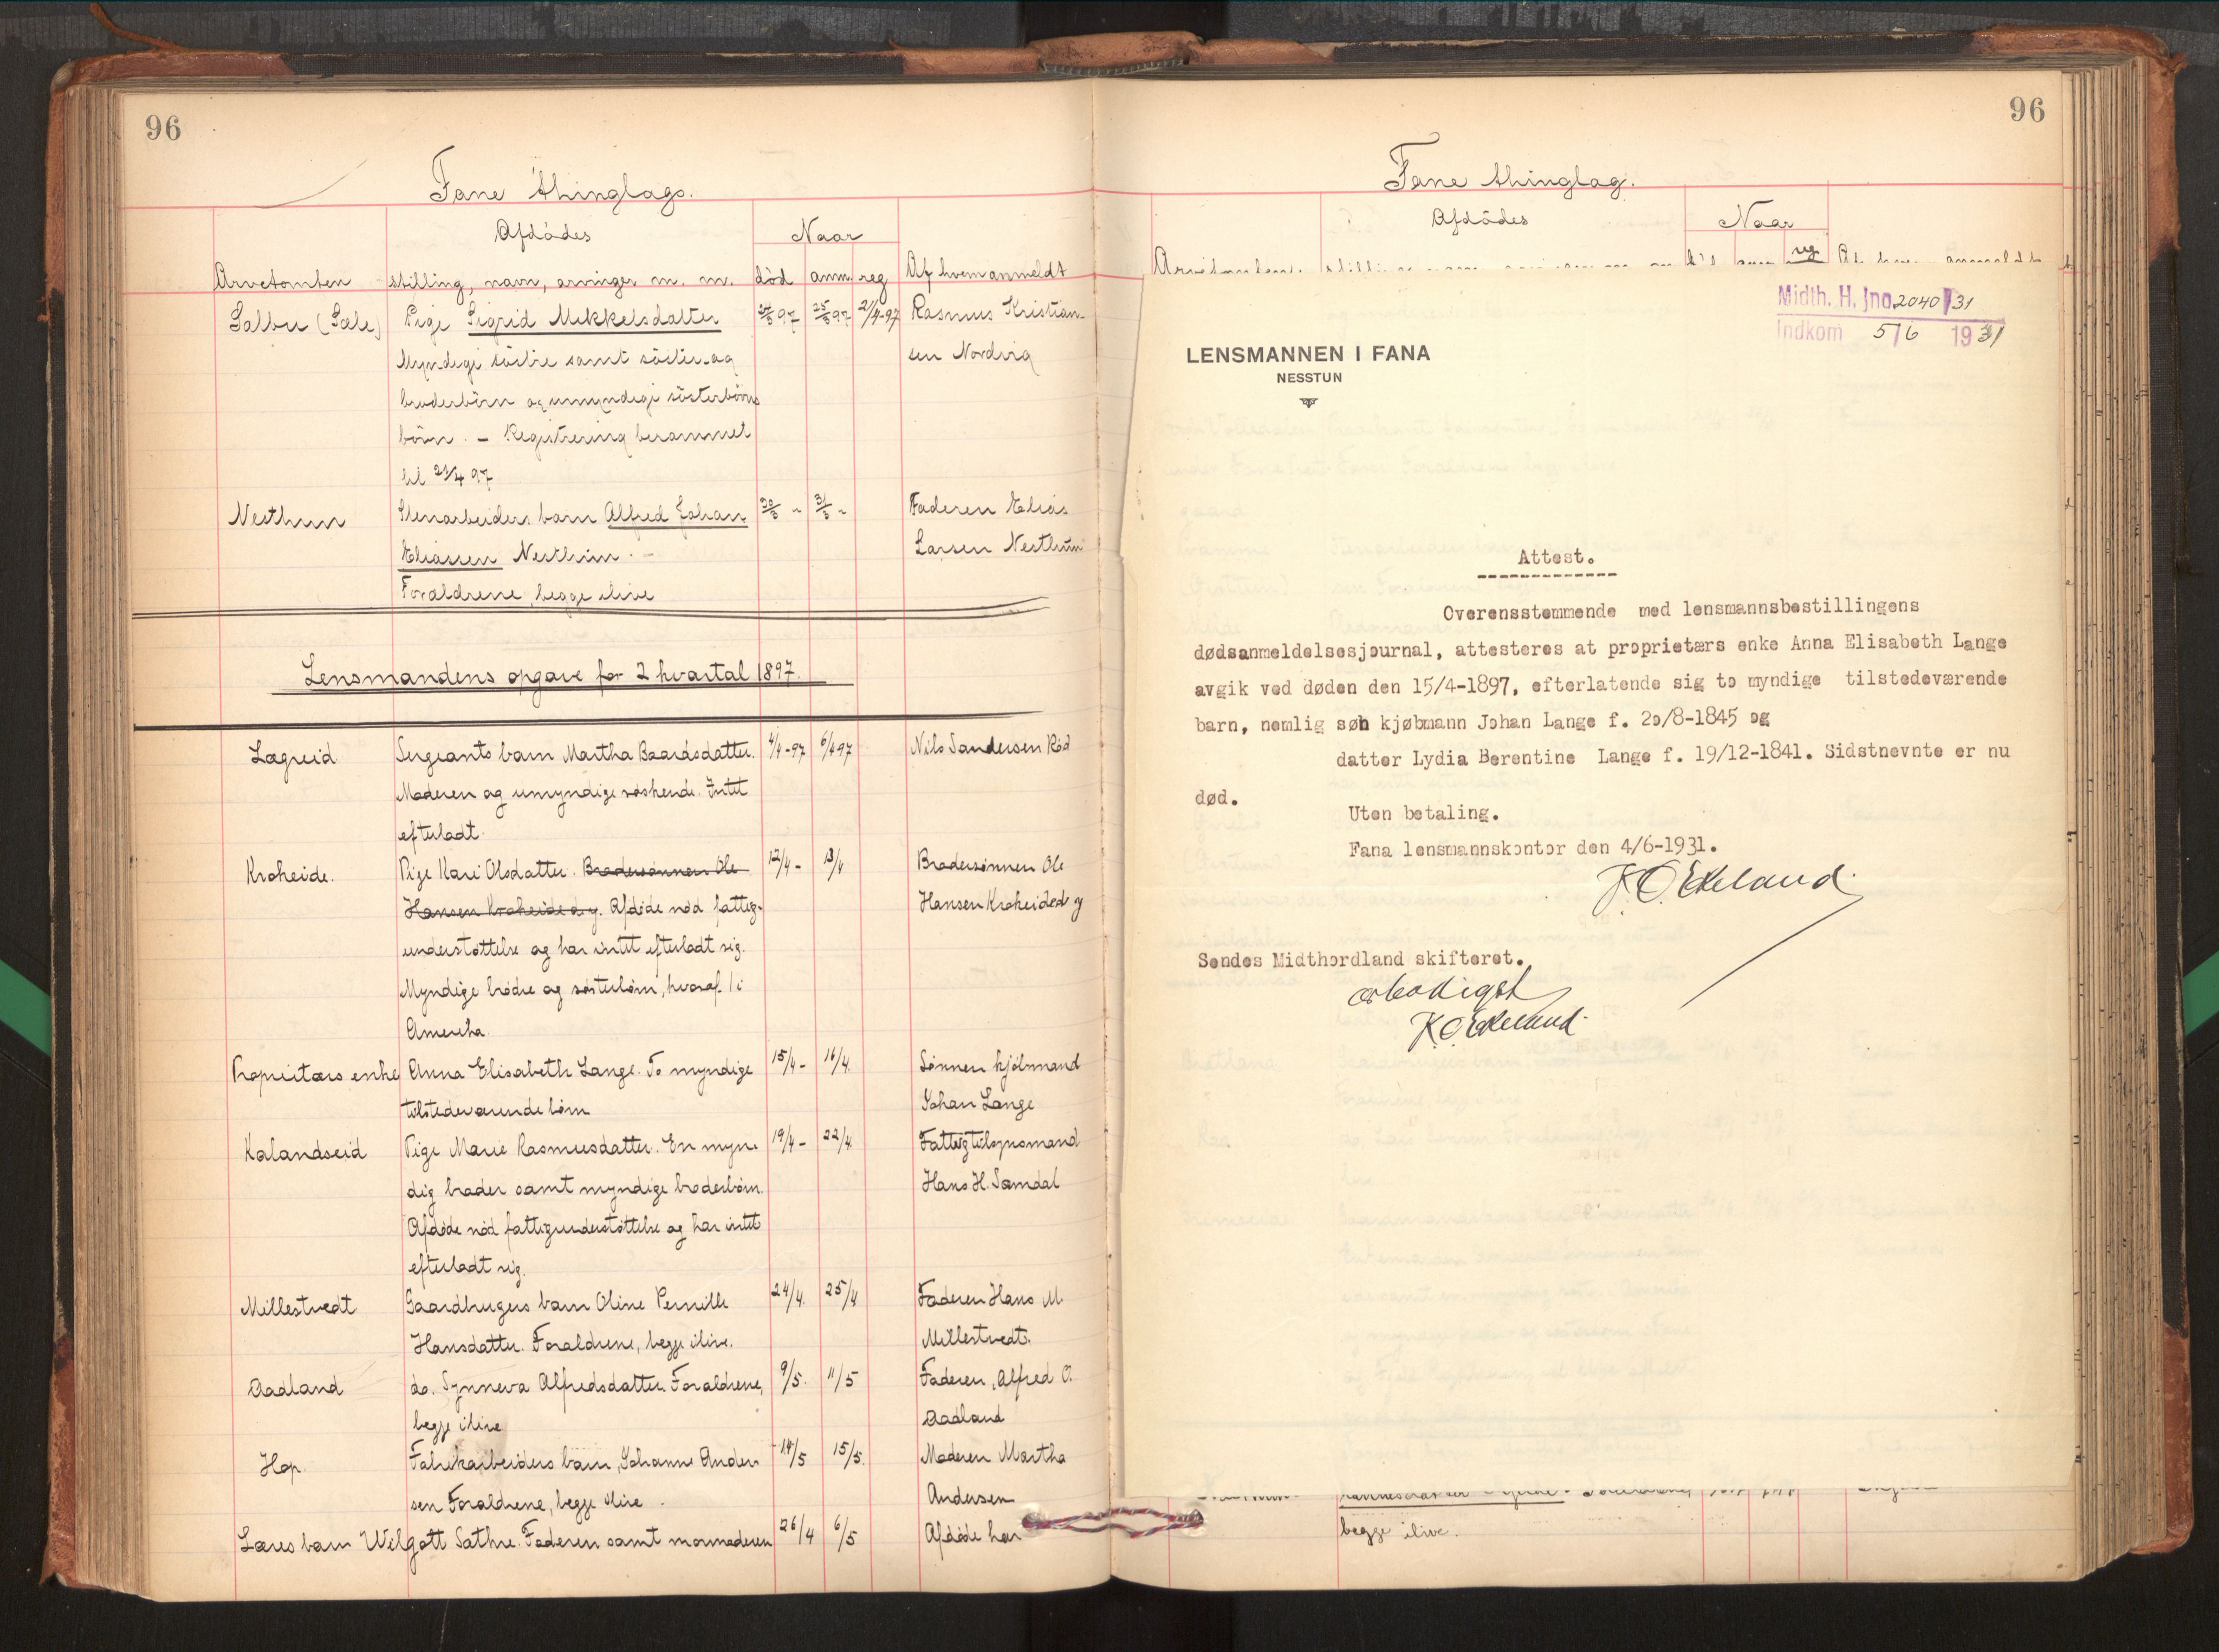 96
Fane thinglags.
Afdødes
Naar
Arvetomten
stilling, navn, arvinger m. m.
død
anm.
reg
Af hvem anmeldt
Salbu (Sæle)
Pige Sigrid Mikkelsdatter
24/3 97
25/3 97
21/4-97
Rasmus Kristian-
Myndige søstre samt søster og
sen Nordvig
broderbørn og umyndige søsterbørns
børn. - Registrering berammet
til 21/4 97
Nesthun
Stenarbeiders barn Alfred Johan
30/3 "
31/3 "
Faderen Elias
Eliassen Nesthun. -
Larsen Nesthun
Forældrene, begge ilive
Lensmandens opgave for 2 kvartal 1897.
Lægreid
Sergeants barn Martha Baardsdatter.
4/4-97
6/4 97
Nils Sandersen Röd
Moderen og umyndige søskende. Intet
efterladt.
Krokeide.
Pige Kari Olsdatter. Brodersønnen Ole
12/4-
13/4
Brodersønnen Ole
Hansen Krokeide d. y. Afdøde nød fattig-
Hansen Krokeide d y
understøttelse og har intet efterladt sig.
Myndige brødre og søsterbørn, hvoraf 1 i
Amerika.
Proprietærs enke
Anna Elisabeth Lange. To myndige
15/4-
16/4.
Sønnen kjøbmand
tilstedeværende børn
Johan Lange
Kalandseid
Pige Marie Rasmusdatter. En myn-
19/4-
22/4
Fattigtilsynsmand
dig broder samt myndige broderbørn.
Hans H. Samdal
Afdøde nød fattigunderstøttelse og har intet
efterladt sig.
Millestvedt
Gaardbrugers barn Oline Pernille
24/4.
25/4
Faderen Hans M.
Hansdatter. Forældrene, begge ilive.
Millestvedt.
Aadland
do. Synneva Alfredsdatter. Forældrene,
9/5.
11/5
Faderen, Alfred O.
begge ilive
Aadland
Hop.
Fabrikarbeiders barn, Johanne Ander-
14/5
15/5.
Moderen Martha
sen Forældrene, begge ilive.
Andersen
Læres barn Wilgott Sathre. Faderen samt mormoderen
26/4
6/5
Afdøde har
96
Fane thinglag.
Afdødes
Naar
reg
Midth. H. Jno. 2040/31
Indkom 5/6 1931
LENSMANNEN I FANA
NESSTUN
Attest.
Overensstemmende med lensmannsbestillingens
dødsanmeldelsesjournal, attesteres at proprietærs enke Anna Elisabeth Lange
avgik ved døden den 15/4-1897, efterlatende sig to myndige tilstedeværende
barn, nemlig søn kjøbmann Johan Lange f. 20/8-1845 og
datter Lydia Berentine Lange f. 19/12-1841. Sidstnevnte er nu
død.
Uten betaling.
Fana lensmannskontor den 4/6-1931.
K. O. Ekeland.
Sendes Midthordland skifteret.
ærbødigst
K. O. Ekeland.
begge ilive.